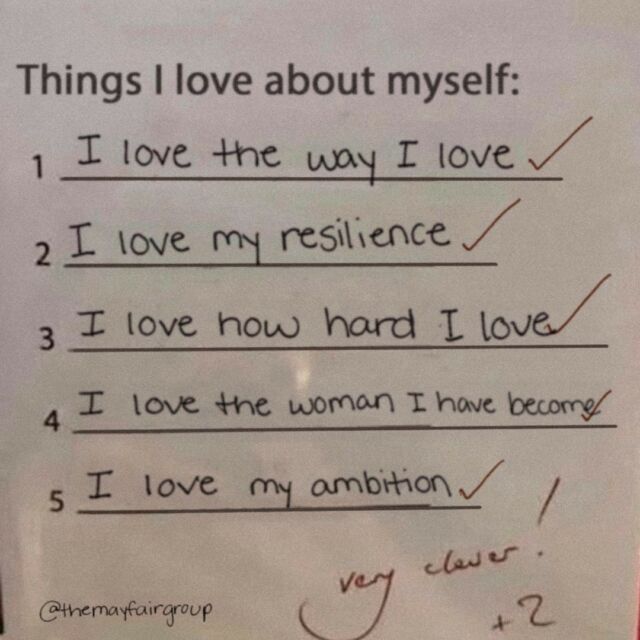 Things I love about myself:
1 I love the way I love ✓
2 I love my resilience ✓
3 I love how hard I love ✓
4 I love the woman I have become ✓
5 I love my ambition ✓
very clever!
@themayfairgroup
+2